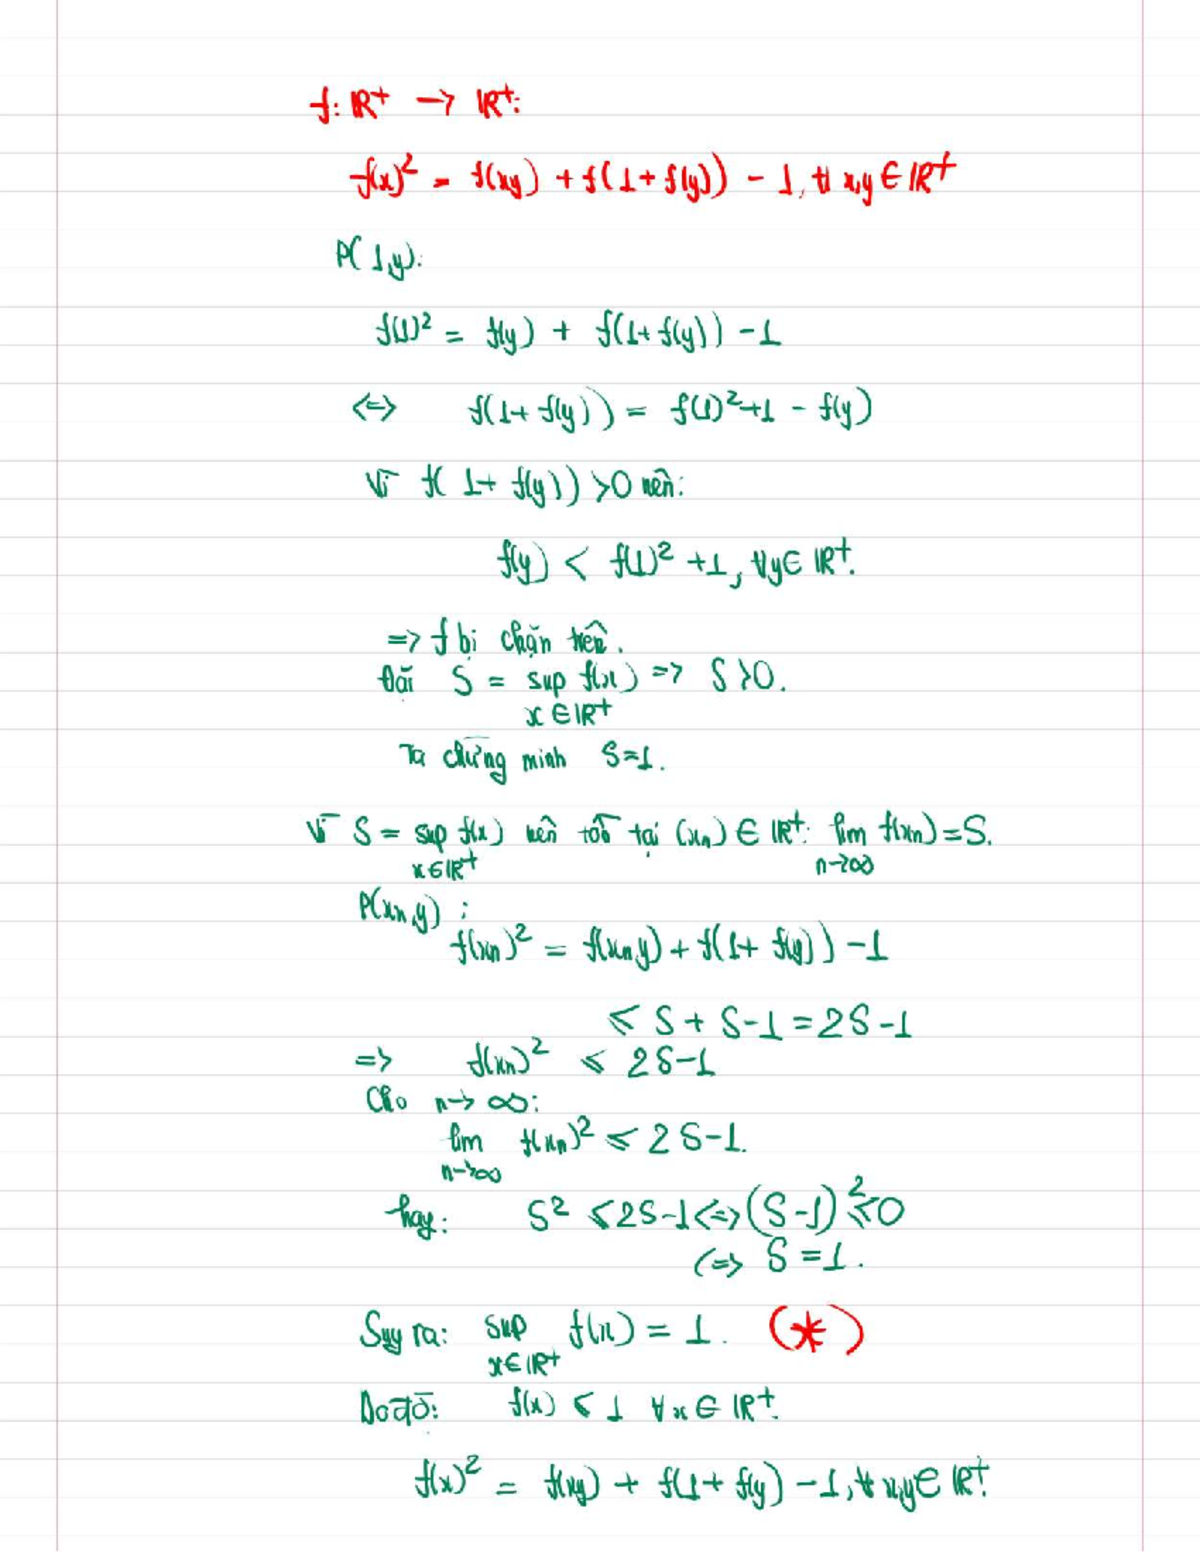 f: ℝ⁺ → ℝ⁺:
f(x)² = f(xy) + f(1+f(y)) - 1, ∀ x,y ∈ ℝ⁺
P(1,y):
f(1)² = f(y) + f(1+f(y)) - 1
<=> f(1+f(y)) = f(1)²+1 - f(y)
Vì f(1+f(y)) >0 nên:
f(y) < f(1)² +1, ∀y∈ ℝ⁺.
=> f bị chặn trên.
Đặt S = sup f(x) => S>0.
x ∈ ℝ⁺
Ta chứng minh S=1.
Vì S = sup f(x) nên tồn tại (xn) ∈ ℝ⁺: lim f(xn) = S.
x∈ℝ⁺ n→∞
P(xn,y) :
f(xn)² = f(xny) + f(1+ f(y)) -1
≤ S + S-1 = 2S -1
=> f(xn)² ≤ 2S-1
Cho n→ ∞:
lim f(xn)² ≤ 2S-1.
n→∞
hay: S² ≤ 2S-1 <=> (S-1)² ≤ 0
<=> S = 1.
Suy ra: sup f(x) = 1. (*)
x∈ℝ⁺
Do đó: f(x) ≤ 1 ∀x∈ ℝ⁺.
f(x)² = f(xy) + f(1+ f(y) -1, ∀ x,y∈ ℝ⁺.